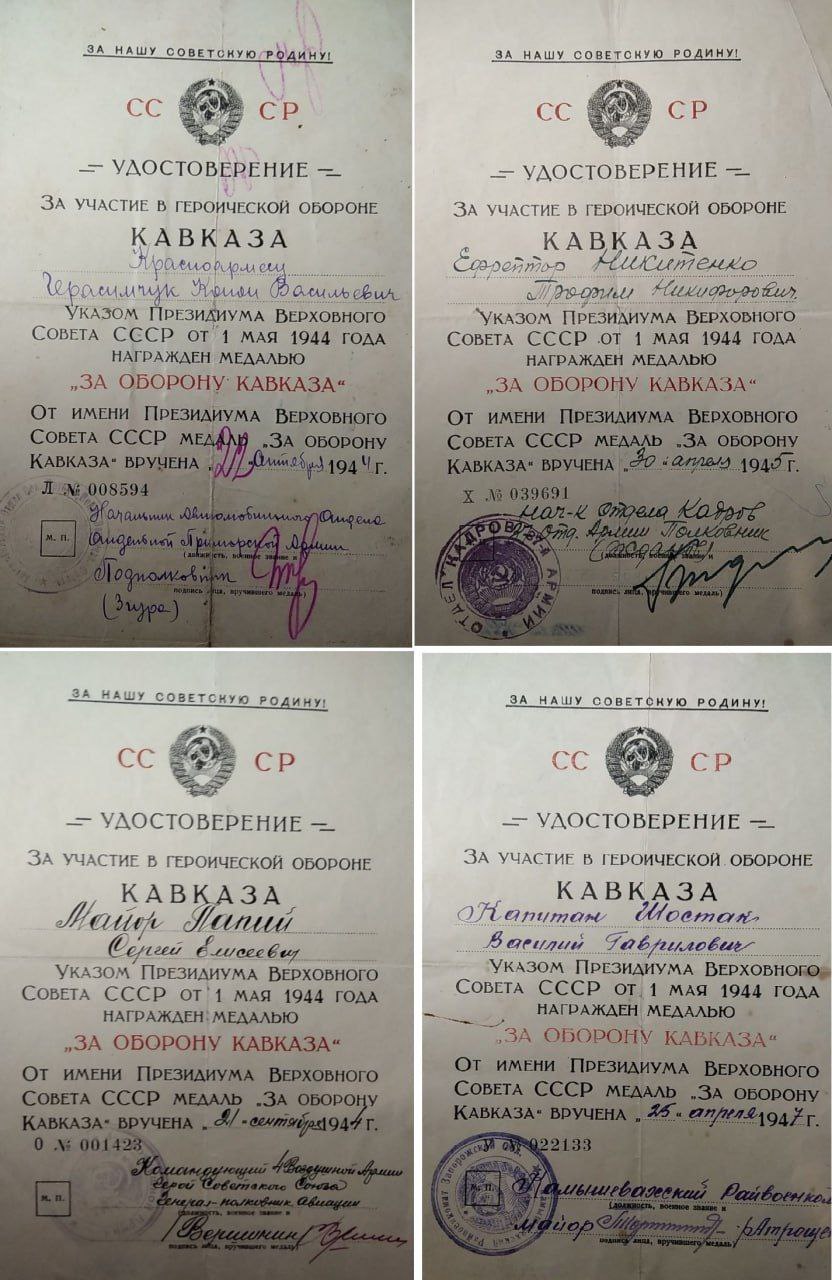 ЗА НАШУ СОВЕТСКУЮ РОДИНУ!
СС СР
УДОСТОВЕРЕНИЕ
ЗА УЧАСТИЕ В ГЕРОИЧЕСКОЙ ОБОРОНЕ
КАВКАЗА
Красноармеец
Герасимчук Васильевич
УКАЗОМ ПРЕЗИДИУМА ВЕРХОВНОГО
СОВЕТА СССР ОТ 1 МАЯ 1944 ГОДА
НАГРАЖДЕН МЕДАЛЬЮ
„ЗА ОБОРОНУ КАВКАЗА“
ОТ ИМЕНИ ПРЕЗИДИУМА ВЕРХОВНОГО
СОВЕТА СССР МЕДАЛЬ „ЗА ОБОРОНУ
КАВКАЗА“ ВРУЧЕНА „22“ 1944 Г.
Л № 008594
Начальник Автомобильного Отдела
М. П.
Отдельной Приморской Армии
(должность, военное звание и
Подполковник
подпись лица, вручившего медаль)
(Згура)
ЗА НАШУ СОВЕТСКУЮ РОДИНУ!
СС СР
УДОСТОВЕРЕНИЕ
ЗА УЧАСТИЕ В ГЕРОИЧЕСКОЙ ОБОРОНЕ
КАВКАЗА
Ефрейтор Никитенко
Трофим Никифорович
УКАЗОМ ПРЕЗИДИУМА ВЕРХОВНОГО
СОВЕТА СССР ОТ 1 МАЯ 1944 ГОДА
НАГРАЖДЕН МЕДАЛЬЮ
„ЗА ОБОРОНУ КАВКАЗА“
ОТ ИМЕНИ ПРЕЗИДИУМА ВЕРХОВНОГО
СОВЕТА СССР МЕДАЛЬ „ЗА ОБОРОНУ
КАВКАЗА“ ВРУЧЕНА „30“ апреля 1945 Г.
Х № 039691
Нач-к Отдела Кадров
Армии Полковник
(должность, военное звание и
подпись лица, вручившего медаль)
ОТДЕЛ КАДРОВ АРМИИ
ЗА НАШУ СОВЕТСКУЮ РОДИНУ!
СС СР
УДОСТОВЕРЕНИЕ
ЗА УЧАСТИЕ В ГЕРОИЧЕСКОЙ ОБОРОНЕ
КАВКАЗА
Майор Папий
Сергей Елисеевич
УКАЗОМ ПРЕЗИДИУМА ВЕРХОВНОГО
СОВЕТА СССР ОТ 1 МАЯ 1944 ГОДА
НАГРАЖДЕН МЕДАЛЬЮ
„ЗА ОБОРОНУ КАВКАЗА“
ОТ ИМЕНИ ПРЕЗИДИУМА ВЕРХОВНОГО
СОВЕТА СССР МЕДАЛЬ „ЗА ОБОРОНУ
КАВКАЗА“ ВРУЧЕНА „21“ сентября 1944 Г.
О № 001423
Командующий 4 Воздушной Армии
Герой Советского Союза
М. П.
Генерал-полковник авиации
(должность, военное звание и
Вершинин
подпись лица, вручившего медаль)
ЗА НАШУ СОВЕТСКУЮ РОДИНУ!
СС СР
УДОСТОВЕРЕНИЕ
ЗА УЧАСТИЕ В ГЕРОИЧЕСКОЙ ОБОРОНЕ
КАВКАЗА
Капитан Шостак
Василий Гаврилович
УКАЗОМ ПРЕЗИДИУМА ВЕРХОВНОГО
СОВЕТА СССР ОТ 1 МАЯ 1944 ГОДА
НАГРАЖДЕН МЕДАЛЬЮ
„ЗА ОБОРОНУ КАВКАЗА“
ОТ ИМЕНИ ПРЕЗИДИУМА ВЕРХОВНОГО
СОВЕТА СССР МЕДАЛЬ „ЗА ОБОРОНУ
КАВКАЗА“ ВРУЧЕНА „25“ апреля 1947 Г.
№ 022133
М. П.
Камышевахский Райвоенком
(должность, военное звание и
майор
подпись лица, вручившего медаль)
Райвоенкомат Запорожской обл.